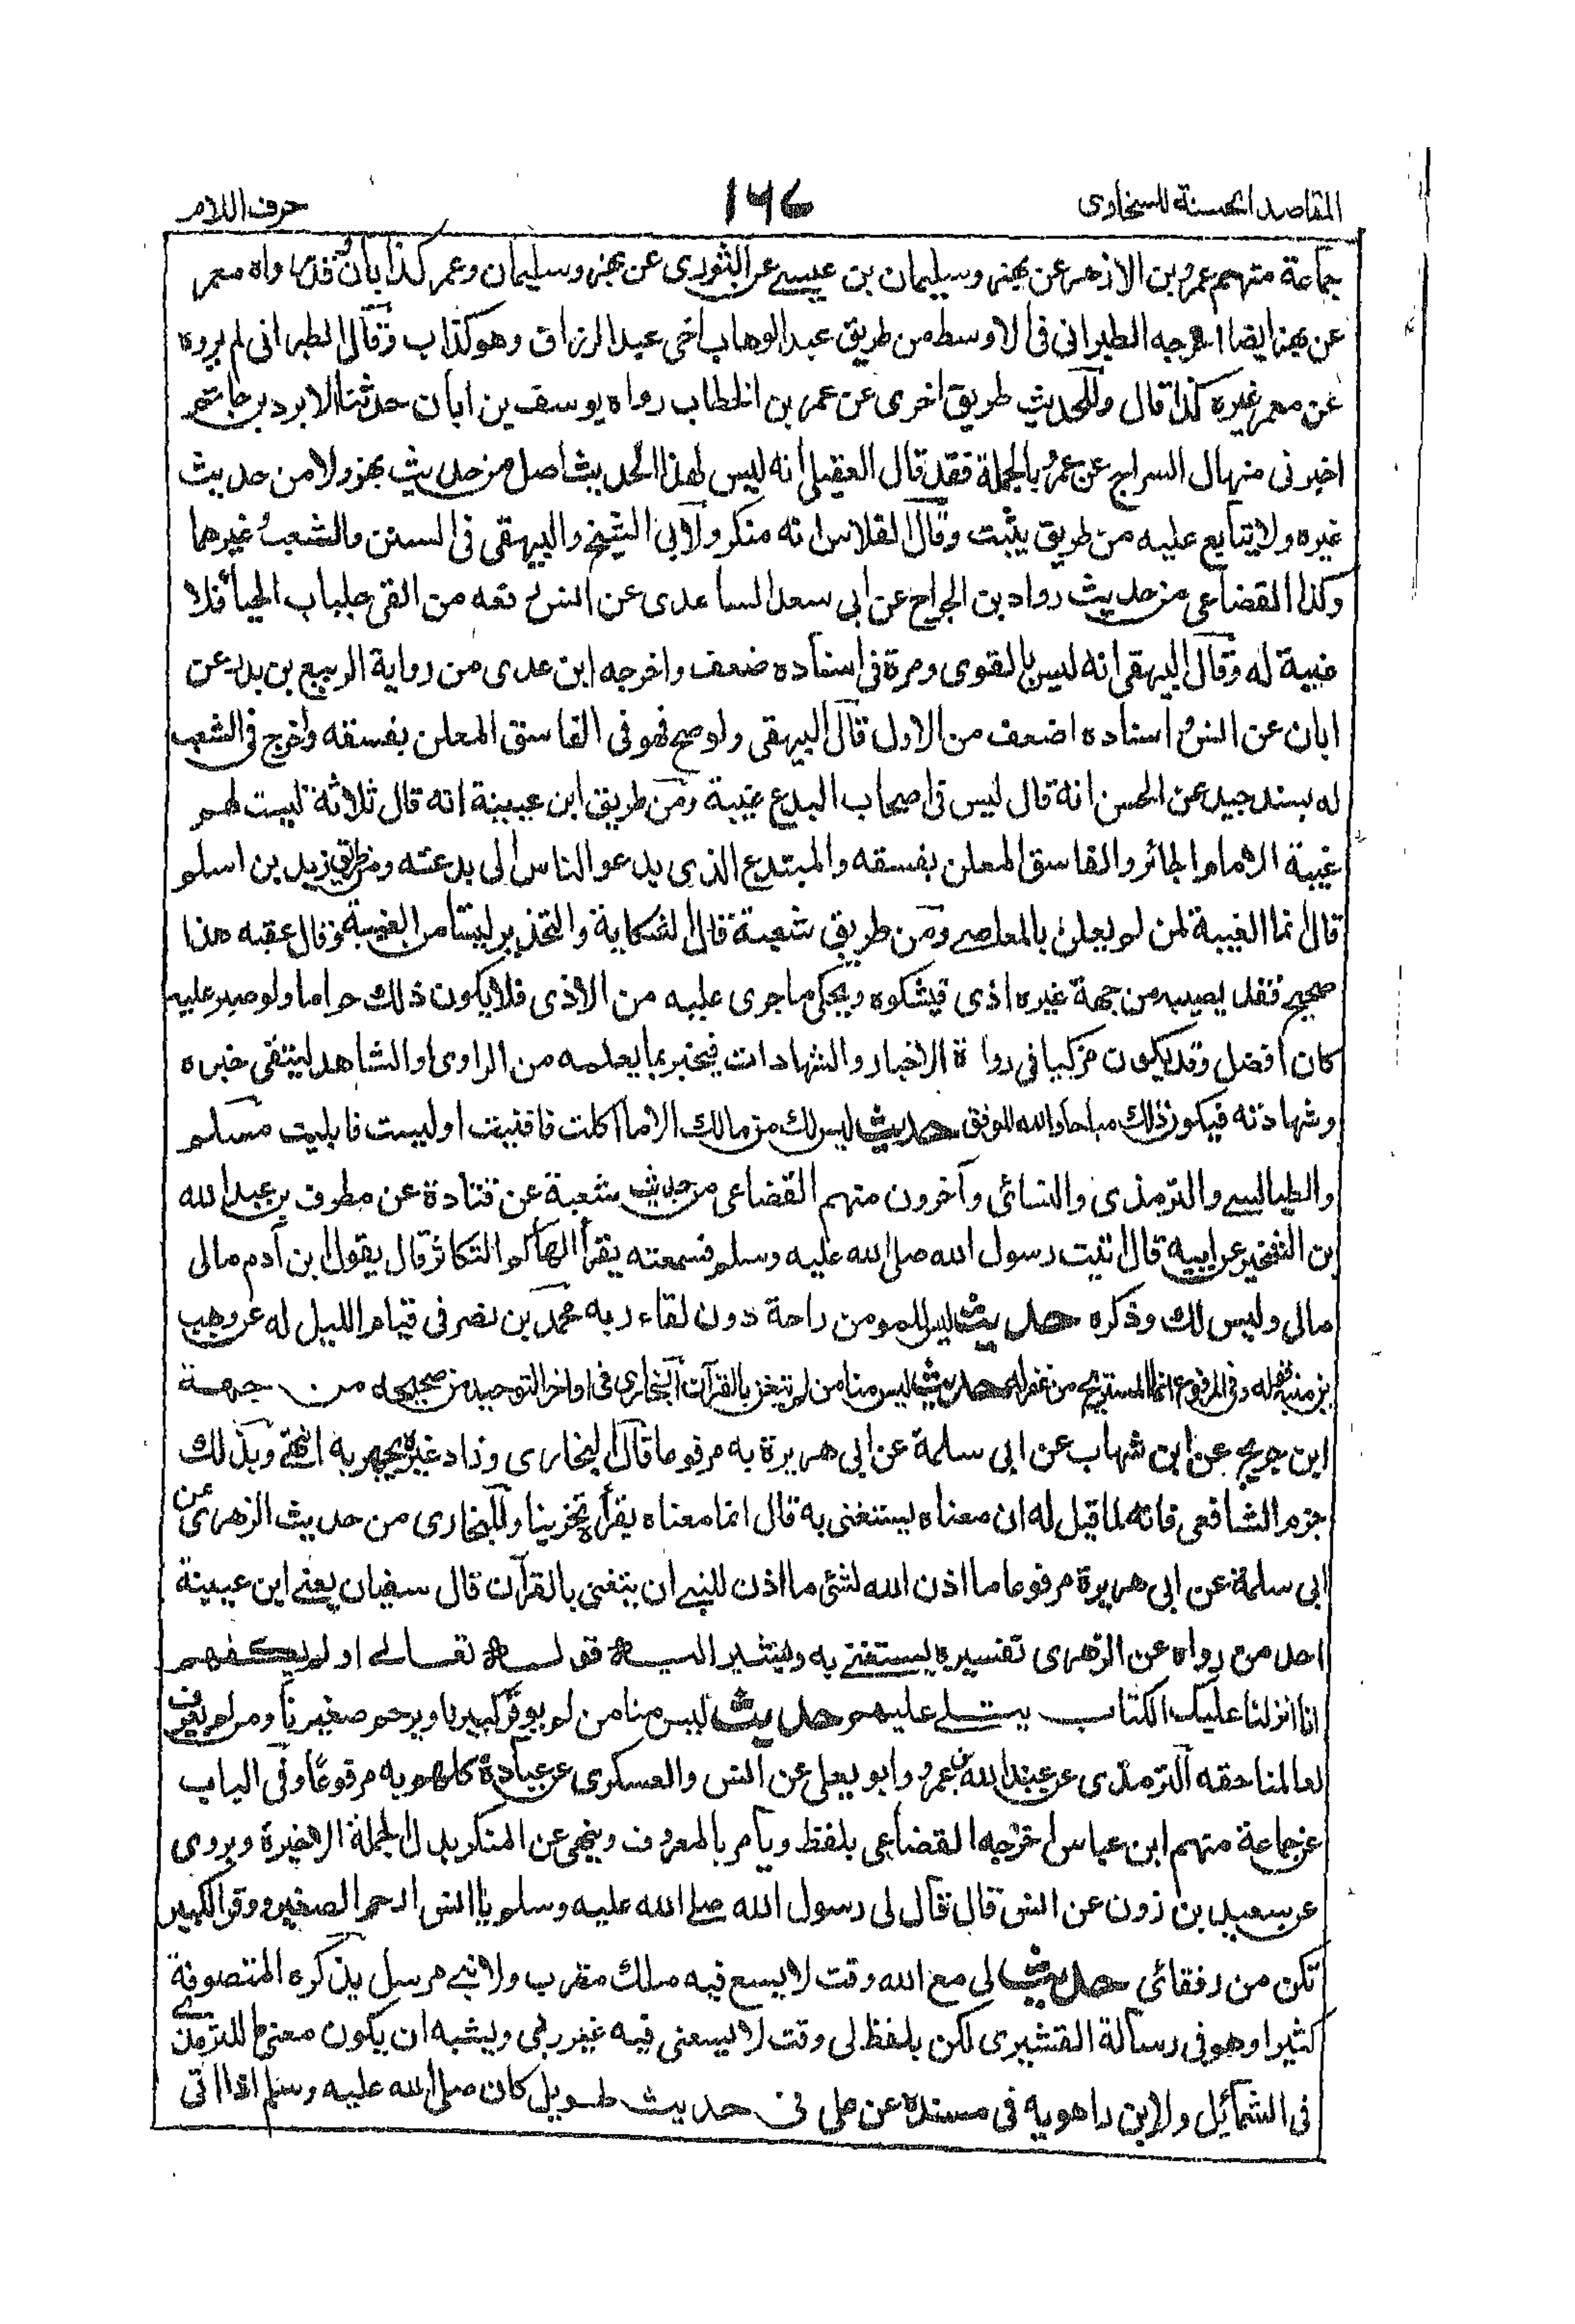 المقاصد الحسنة للسخاوى ١٦٧ حرف اللام
جماعة منهم عمرو بن الازهر عن بهز وسليمان بن عيسى عن الثورى عن بهز وسليمان وعمرو كذابان وقد رواه معمر
عن بهز ايضا اخرجه الطبرانى فى الاوسط من طريق عبد الوهاب اخى عبد الرزاق وهو كذاب وقال الطبرانى لم يروه
عن معمر غيره كذا قال وللحديث طريق اخرى عن عمر بن الخطاب رواه يوسف بن ابان حدثنا الابرد بن حاتم
اخبرنى منهال السراج عن عمر وبالجملة فقد قال العقيلى انه ليس لهذا الحديث اصل من حديث بهز ولا من حديث
غيره ولا يتابع عليه من طريق يثبت وقال الفلاس انه منكر ولابى الشيخ والبيهقى فى السنن والشعب وغيرهما
وكذا القضاعى من حديث رواد بن الجراح عن ابى سعد الساعدى عن انس رفعه من القى جلباب الحياء فلا
غيبة له وقال البيهقى انه ليس بالقوى ومرة فى اسناده ضعف واخرجه ابن عدى من رواية الربيع بن بدر عن
ابان عن انس واسناده اضعف من الاول قال البيهقى ولو صح فهو فى الفاسق المعلن بفسقه واخرج فى الشعب
له بسند جيد عن الحسن انه قال ليس فى اصحاب البدع غيبة ومن طريق ابن عيينة انه قال ثلاثة ليست لهم
غيبة الامام الجائر والفاسق المعلن بفسقه والمبتدع الذى يدعو الناس الى بدعته ومن طريق زيد بن اسلم
قال انما الغيبة لمن لم يعلن بالمعاصى ومن طريق شعبة قال الشكاية والتحذير ليسا من الغيبة وقال عقبه هذا
صحيح فقد يصيبه من جهة غيره اذى فيشكوه ويحكى ما جرى عليه من الاذى فلا يكون ذلك حراما ولو صبر عليه
كان افضل وقد يكون مزكيا فى رواة الاخبار والشهادات فيخبر بما يعلمه من الراوى او الشاهد ليتقى خبره
وشهادته فيكون ذلك مباحا والله الموفق حديث ليس لك من مالك الا ما اكلت فافنيت او لبست فابليت مسلم
والطيالسى والترمذى والنسائى وآخرون منهم القضاعى من حديث شعبة عن قتادة عن مطرف بن عبد الله
بن الشخير عن ابيه قال اتيت رسول الله صلى الله عليه وسلم فسمعته يقرأ الهاكم التكاثر قال يقول ابن آدم مالى
مالى وليس لك وذكره حديث ليس للمومن راحة دون لقاء ربه محمد بن نصر فى قيام الليل له عن وهب
بن منبه قوله وفى المرفوع انما المستريح من غفر له حديث ليس منا من لم يتغن بالقرآن البخارى فى اواخر التوحيد من صحيحه من جهة
ابن جريج عن ابن شهاب عن ابى سلمة عن ابى هريرة به مرفوعا قال البخارى وزاد غيره يجهر به انتهى وبذلك
جزم الشافعى فانه لما قيل له ان معناه يستغنى به قال انما معناه يقرأه تحزينا وللبخارى من حديث الزهرى عن
ابى سلمة عن ابى هريرة مرفوعا ما اذن الله لشئ ما اذن للنبى ان يتغنى بالقرآن قال سفيان يعنى ابن عيينة
احد من رواه عن الزهرى تفسيره يستغنى به ويشير اليه قوله تعالى او لم يكفهم
انا انزلنا عليك الكتاب يتلى عليهم حديث ليس منا من لم يوقر كبيرنا ويرحم صغيرنا ومن لم يعرف
لعالمنا حقه الترمذى عن عبد الله بن عمرو وابو يعلى عن انس والعسكرى عن عبادة كلهم به مرفوعا وفى الباب
عن جماعة منهم ابن عباس اخرجه القضاعى بلفظ ويأمر بالمعروف وينهى عن المنكر بدل الجملة الاخيرة ويروى
عن سعيد بن زون عن انس قال قال لى رسول الله صلى الله عليه وسلم يا انس ارحم الصغير ووقر الكبير
تكن من رفقائى حديث لى مع الله وقت لا يسع فيه ملك مقرب ولا نبى مرسل يذكره المتصوفة
كثيرا وهو فى رسالة القشيرى لكن بلفظ لى وقت لا يسعنى فيه غير ربى ويشبه ان يكون معنى ما للترمذى
فى الشمائل ولابن راهويه فى مسنده عن على فى حديث طويل كان صلى الله عليه وسلم اذا اتى